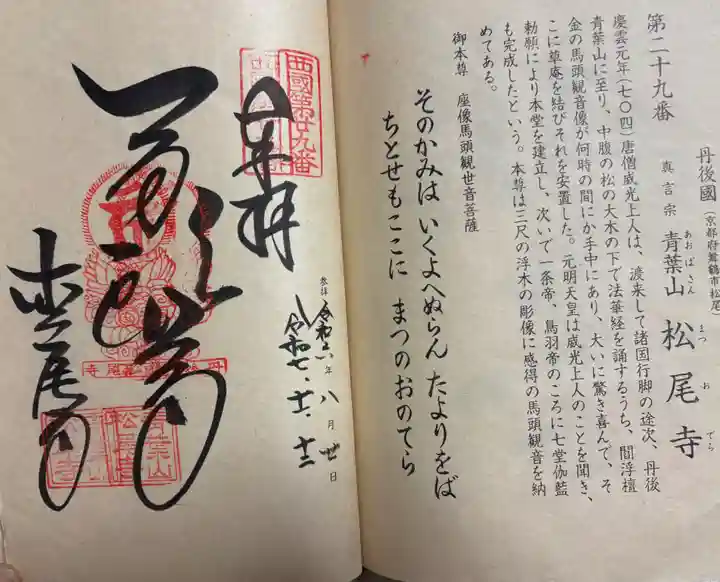 第二十九番
丹後國
(京都府舞鶴市松尾)
真言宗
青葉山
あおばさん
松尾寺
まつおでら
慶雲元年(七〇四)唐僧威光上人は、渡来して諸国行脚の途次、丹後
青葉山に至り、中腹の松の大木の下で法華経を誦するうち、閻浮檀
金の馬頭観音像が何時の間にか手中にあり、大いに驚き喜んで、そ
こに草庵を結びそれを安置した。元明天皇は威光上人のことを聞き、
勅願により本堂を建立し、次いで一条帝、鳥羽帝のころに七堂伽藍
も完成したという。本尊は三尺の浮木の彫像に感得の馬頭観音を納
めてある。
御本尊 座像馬頭観世音菩薩
そのかみは いくよへぬらん たよりをば
ちとせもここに まつのおのてら
西國第廿九番
奉拝
参拝 令和六年 八月 廿日
令和七、十一、十二
松尾寺
青葉山
松尾寺